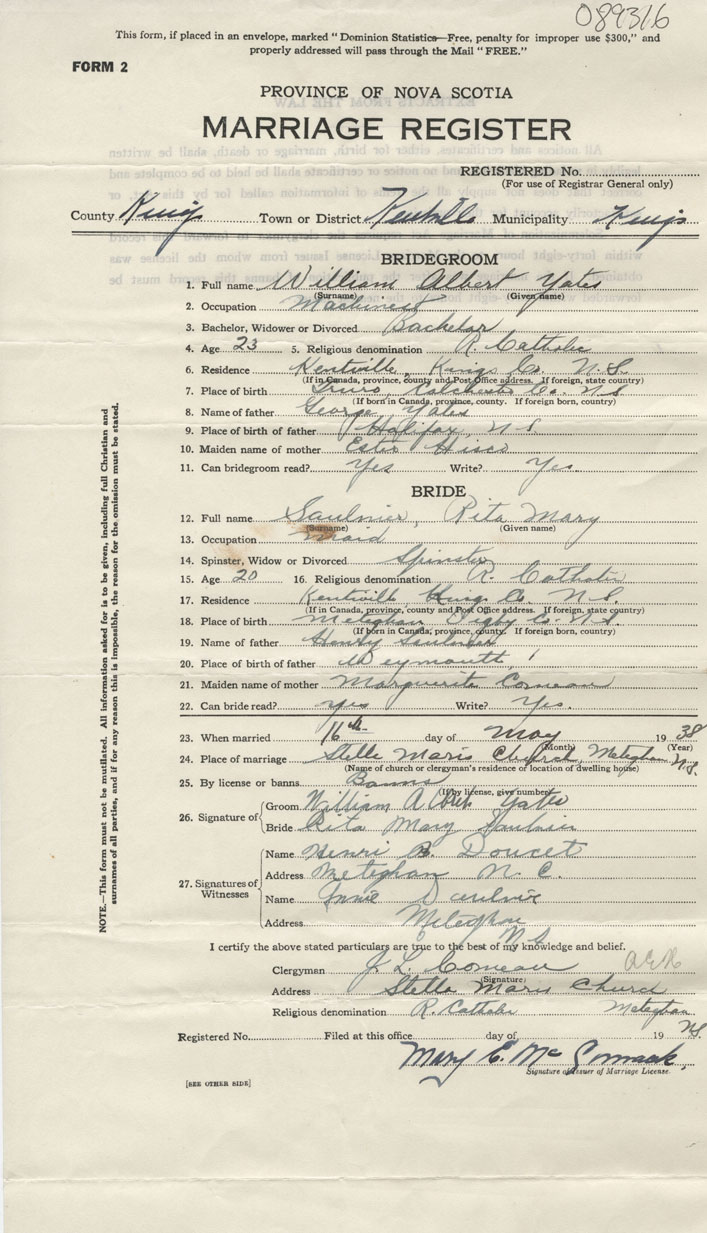 089316
This form, if placed in an envelope, marked "Dominion Statistics—Free, penalty for improper use $300," and
properly addressed will pass through the Mail "FREE."
FORM 2
PROVINCE OF NOVA SCOTIA
MARRIAGE REGISTER
REGISTERED No.
(For use of Registrar General only)
County Kings Town or District Kentville Municipality Kings
BRIDEGROOM
1. Full name William Albert Yates
(Surname) (Given name)
2. Occupation Machinest
3. Bachelor, Widower or Divorced Bachelor
4. Age 23 5. Religious denomination R. Catholic
6. Residence Kentville, Kings Co. N.S.
(If in Canada, province, county and Post Office address. If foreign, state country)
7. Place of birth Truro, Colchester Co. N.S
(If born in Canada, province, county. If foreign born, country)
8. Name of father George Yates
9. Place of birth of father Halifax, N S
10. Maiden name of mother Ester
11. Can bridegroom read? Yes Write? Yes
BRIDE
12. Full name Saulnier, Rita Mary
(Surname) (Given name)
13. Occupation Maid
14. Spinster, Widow or Divorced Spinster
15. Age 20 16. Religious denomination R. Catholic
17. Residence Kentville Kings Co. N S
(If in Canada, province, county and Post Office address. If foreign, state country)
18. Place of birth Meteghan Digby Co. N.S.
(If born in Canada, province, county. If foreign born, country)
19. Name of father Henry Saulnier
20. Place of birth of father Weymouth,
21. Maiden name of mother Marguerite Comeau
22. Can bride read? yes Write? Yes.
23. When married 16th day of May 1938
(Month) (Year)
24. Place of marriage Stella Maris Church, Meteghan N.S.
(Name of church or clergyman's residence or location of dwelling house)
25. By license or banns Banns
(If by license, give number)
26. Signature of Groom William Albert Yates
Bride Rita Mary Saulnier
27. Signatures of Witnesses
Name Henri B. Doucet
Address Meteghan N. C.
Name Annie Saulnier
Address Meteghan N S
I certify the above stated particulars are true to the best of my knowledge and belief.
Clergyman J. L. Comeau
(Signature)
Address Stella Maris Church
Religious denomination R. Catholic Meteghan N.S.
Registered No. Filed at this office day of 19
Mary E. McCormack,
Signature of Issuer of Marriage License.
[SEE OTHER SIDE]
NOTE.—This form must not be mutilated. All information asked for is to be given, including full Christian and
surnames of all parties, and if for any reason this is impossible, the reason for the omission must be stated.